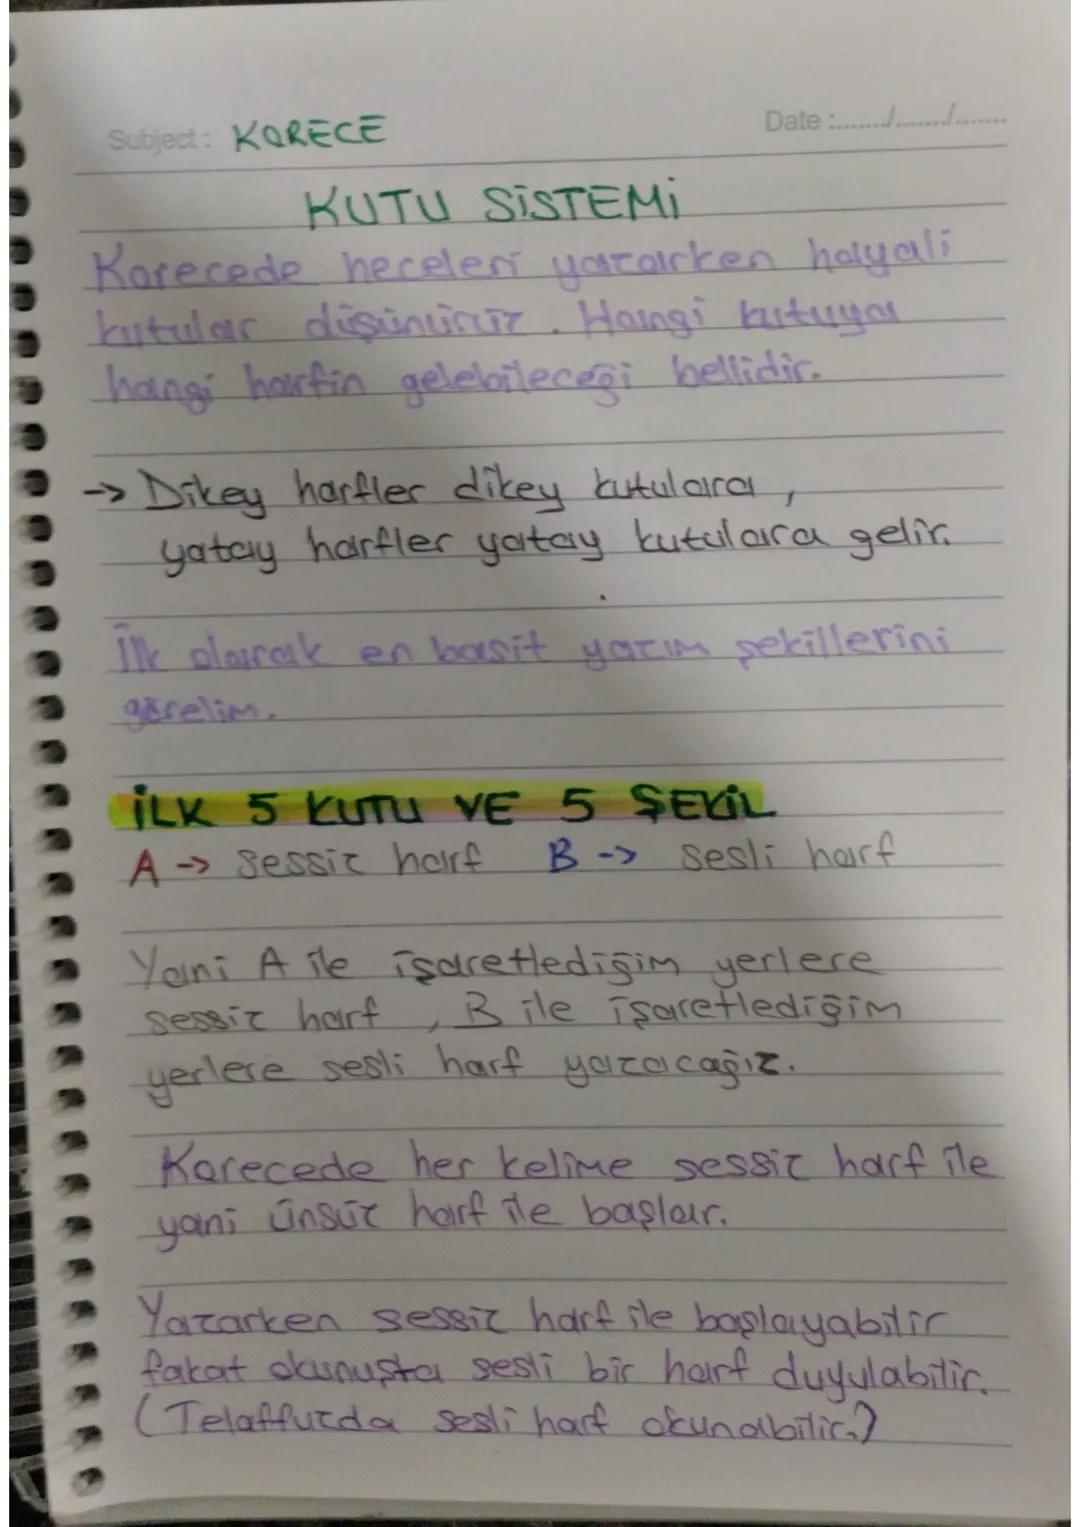 Subject: KORECE
Date :......./......./.......
KUTU SİSTEMİ
Korecede heceleri yazarken hayali
kutular düşünürüz. Hangi kutuya
hangi harfin gelebileceği bellidir.
-> Dikey harfler dikey kutulara,
yatay harfler yatay kutulara gelir.
İlk olarak en basit yazım şekillerini
görelim.
İLK 5 KUTU VE 5 ŞEKİL
A -> sessiz harf B -> sesli harf
Yani A ile işaretlediğim yerlere
sessiz harf, B ile işaretlediğim
yerlere sesli harf yazacağız.
Korecede her kelime sessiz harf ile
yani ünsüz harf ile başlar.
Yazarken sessiz harf ile başlayabilir
fakat okunuşta sesli bir harf duyulabilir.
(Telaffuzda sesli harf okunabilir.)